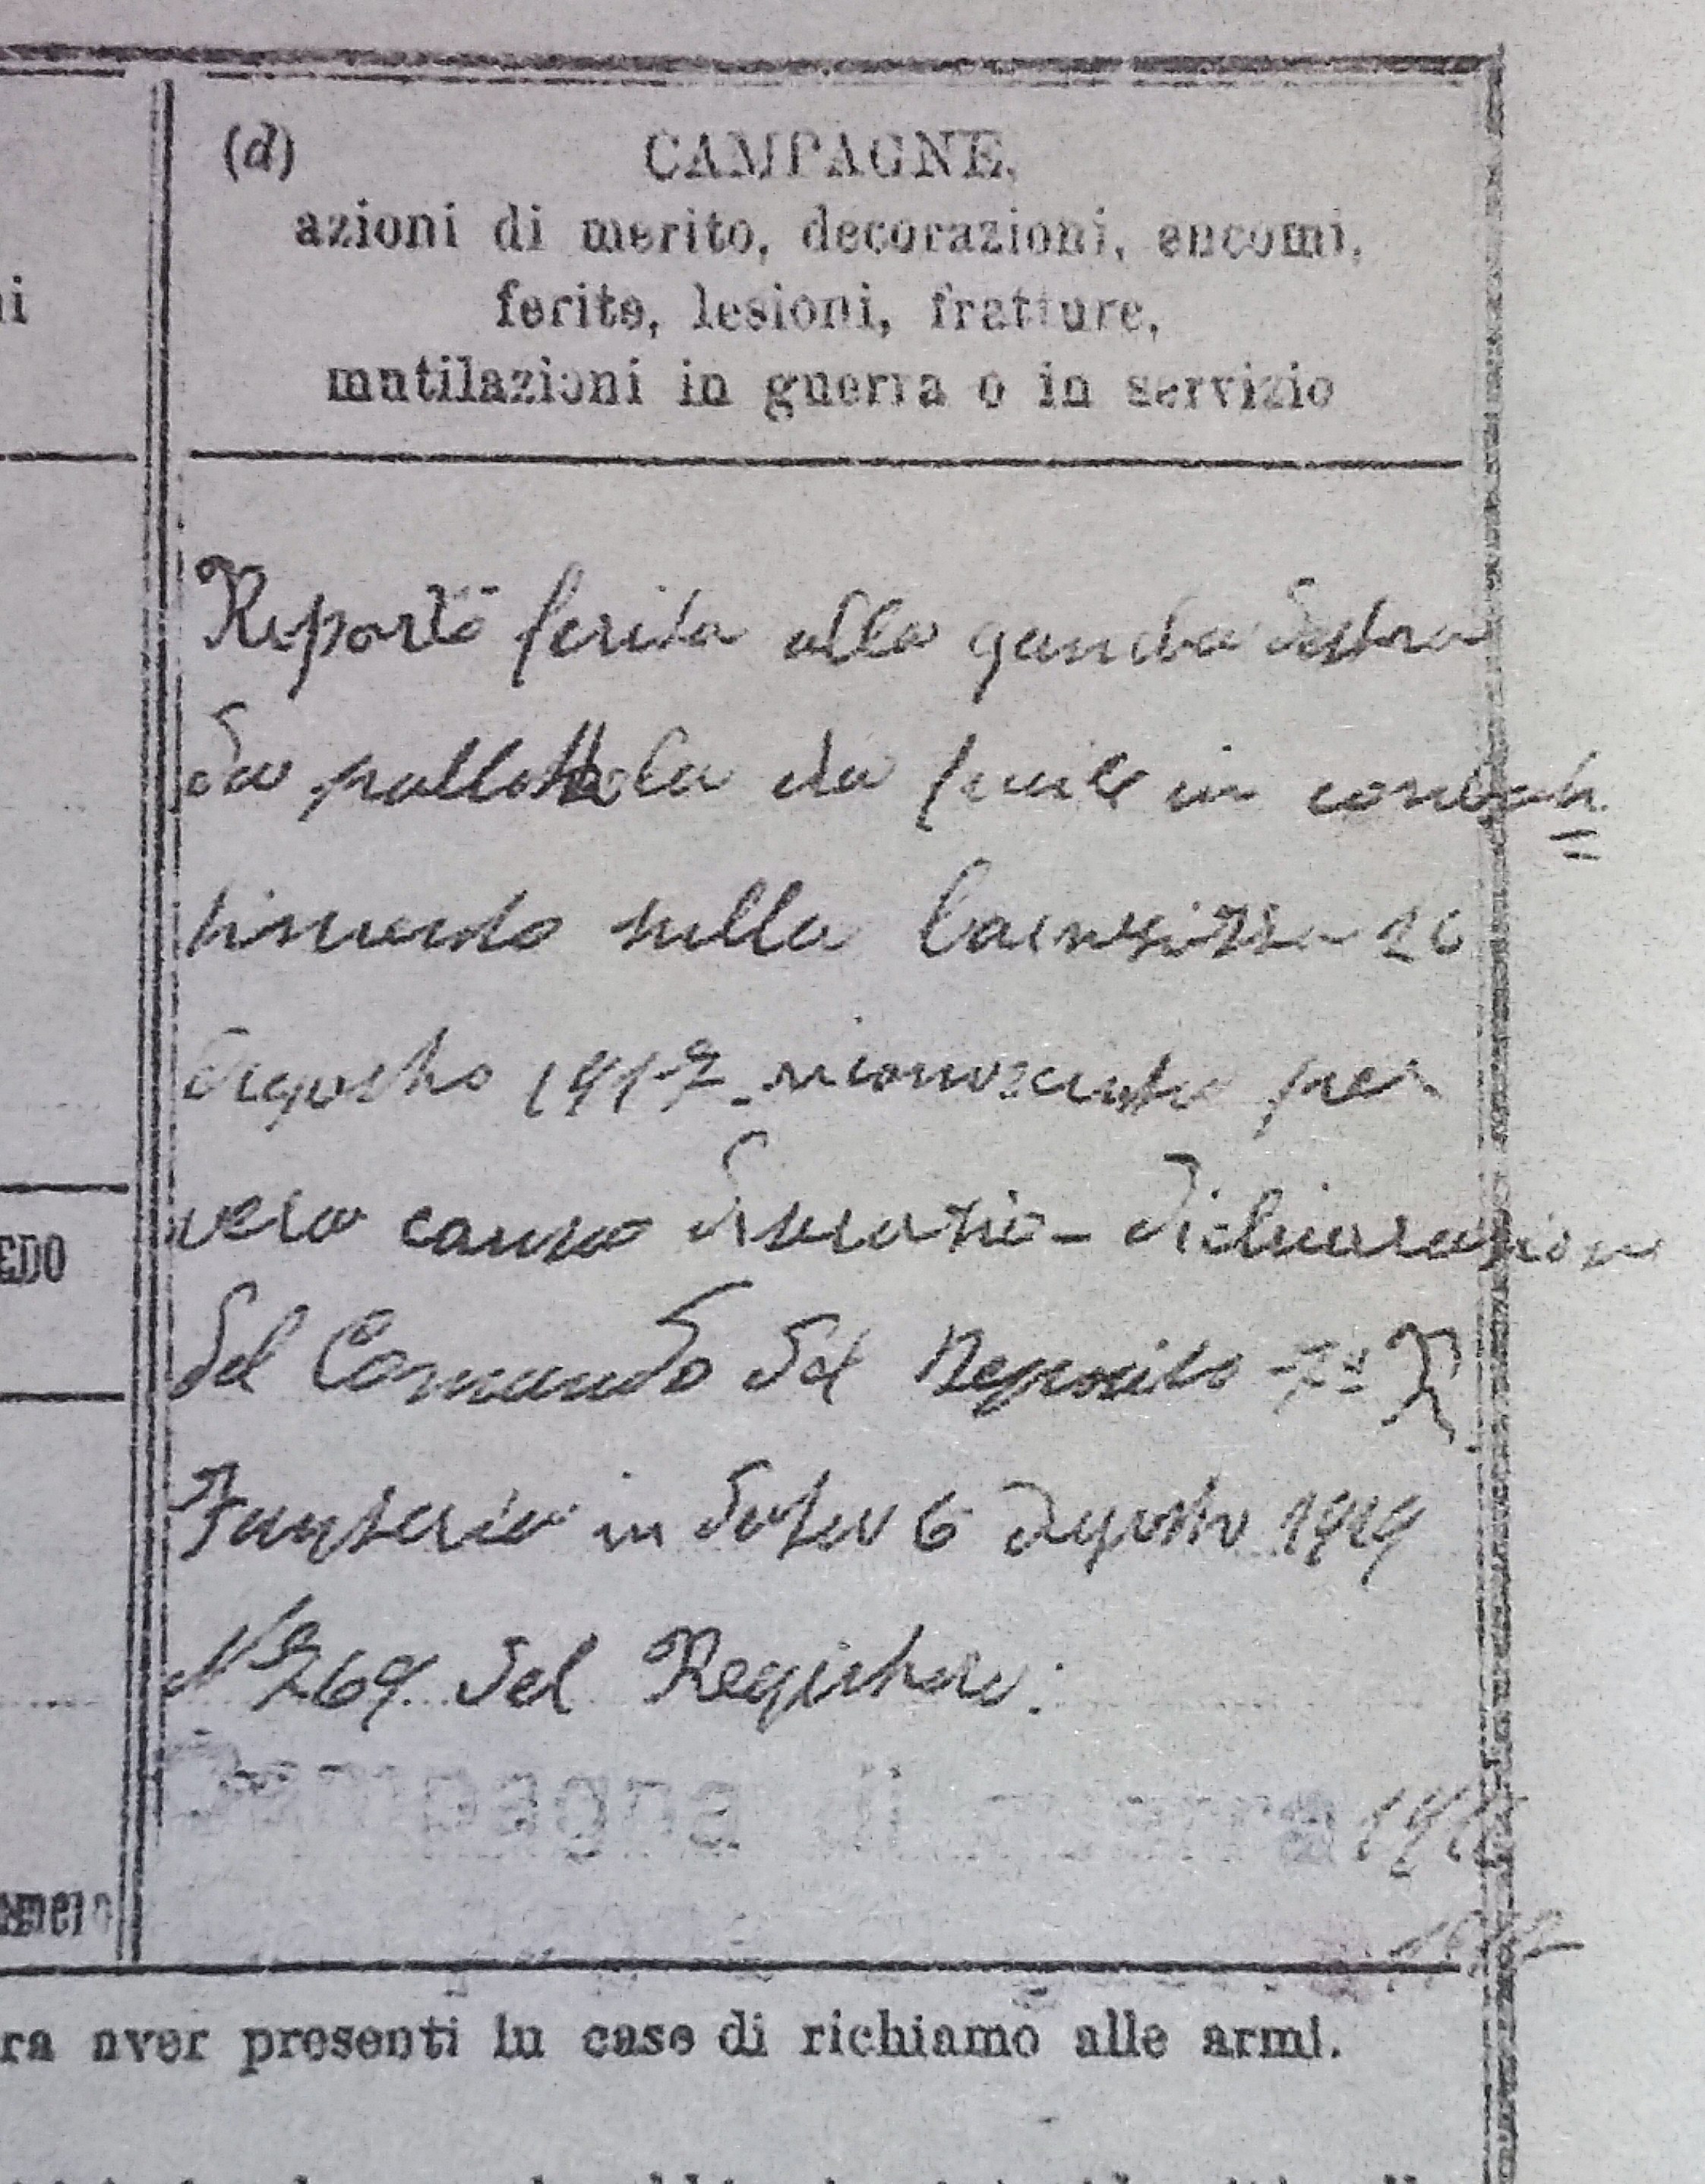 ni
(d) CAMPAGNE,
azioni di merito, decorazioni, encomi,
ferite, lesioni, fratture,
mutilazioni in guerra o in servizio
Riportò ferita alla gamba destra
da pallottola da fucile in combat=
timento sulla Bainsizza 26
Agosto 1917 riconosciuta per
vera causa servizio - Dichiarazione
del Comando del Deposito 7º R.
Fanteria in data 6 Agosto 1919
Nº 769 del Registro.
EDO
Campagna di guerra 191
ra aver presenti in caso di richiamo alle armi.